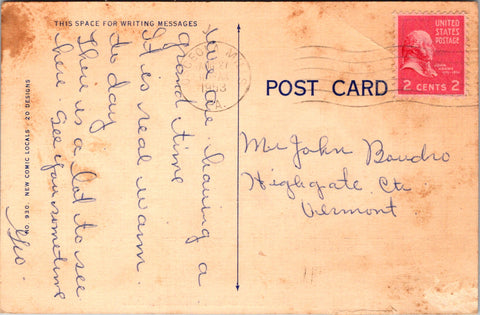 THIS SPACE FOR WRITING MESSAGES
we are having a
grand time
It is real warm
to day
There is a lot to see
here. See you sometime
Geo
NO. 930. NEW COMIC LOCALS - 20 DESIGNS
1953
POST CARD
UNITED
STATES
POSTAGE
JOHN
ADAMS
2 CENTS 2
Mr John Boudro
Highgate Ctr
Vermont